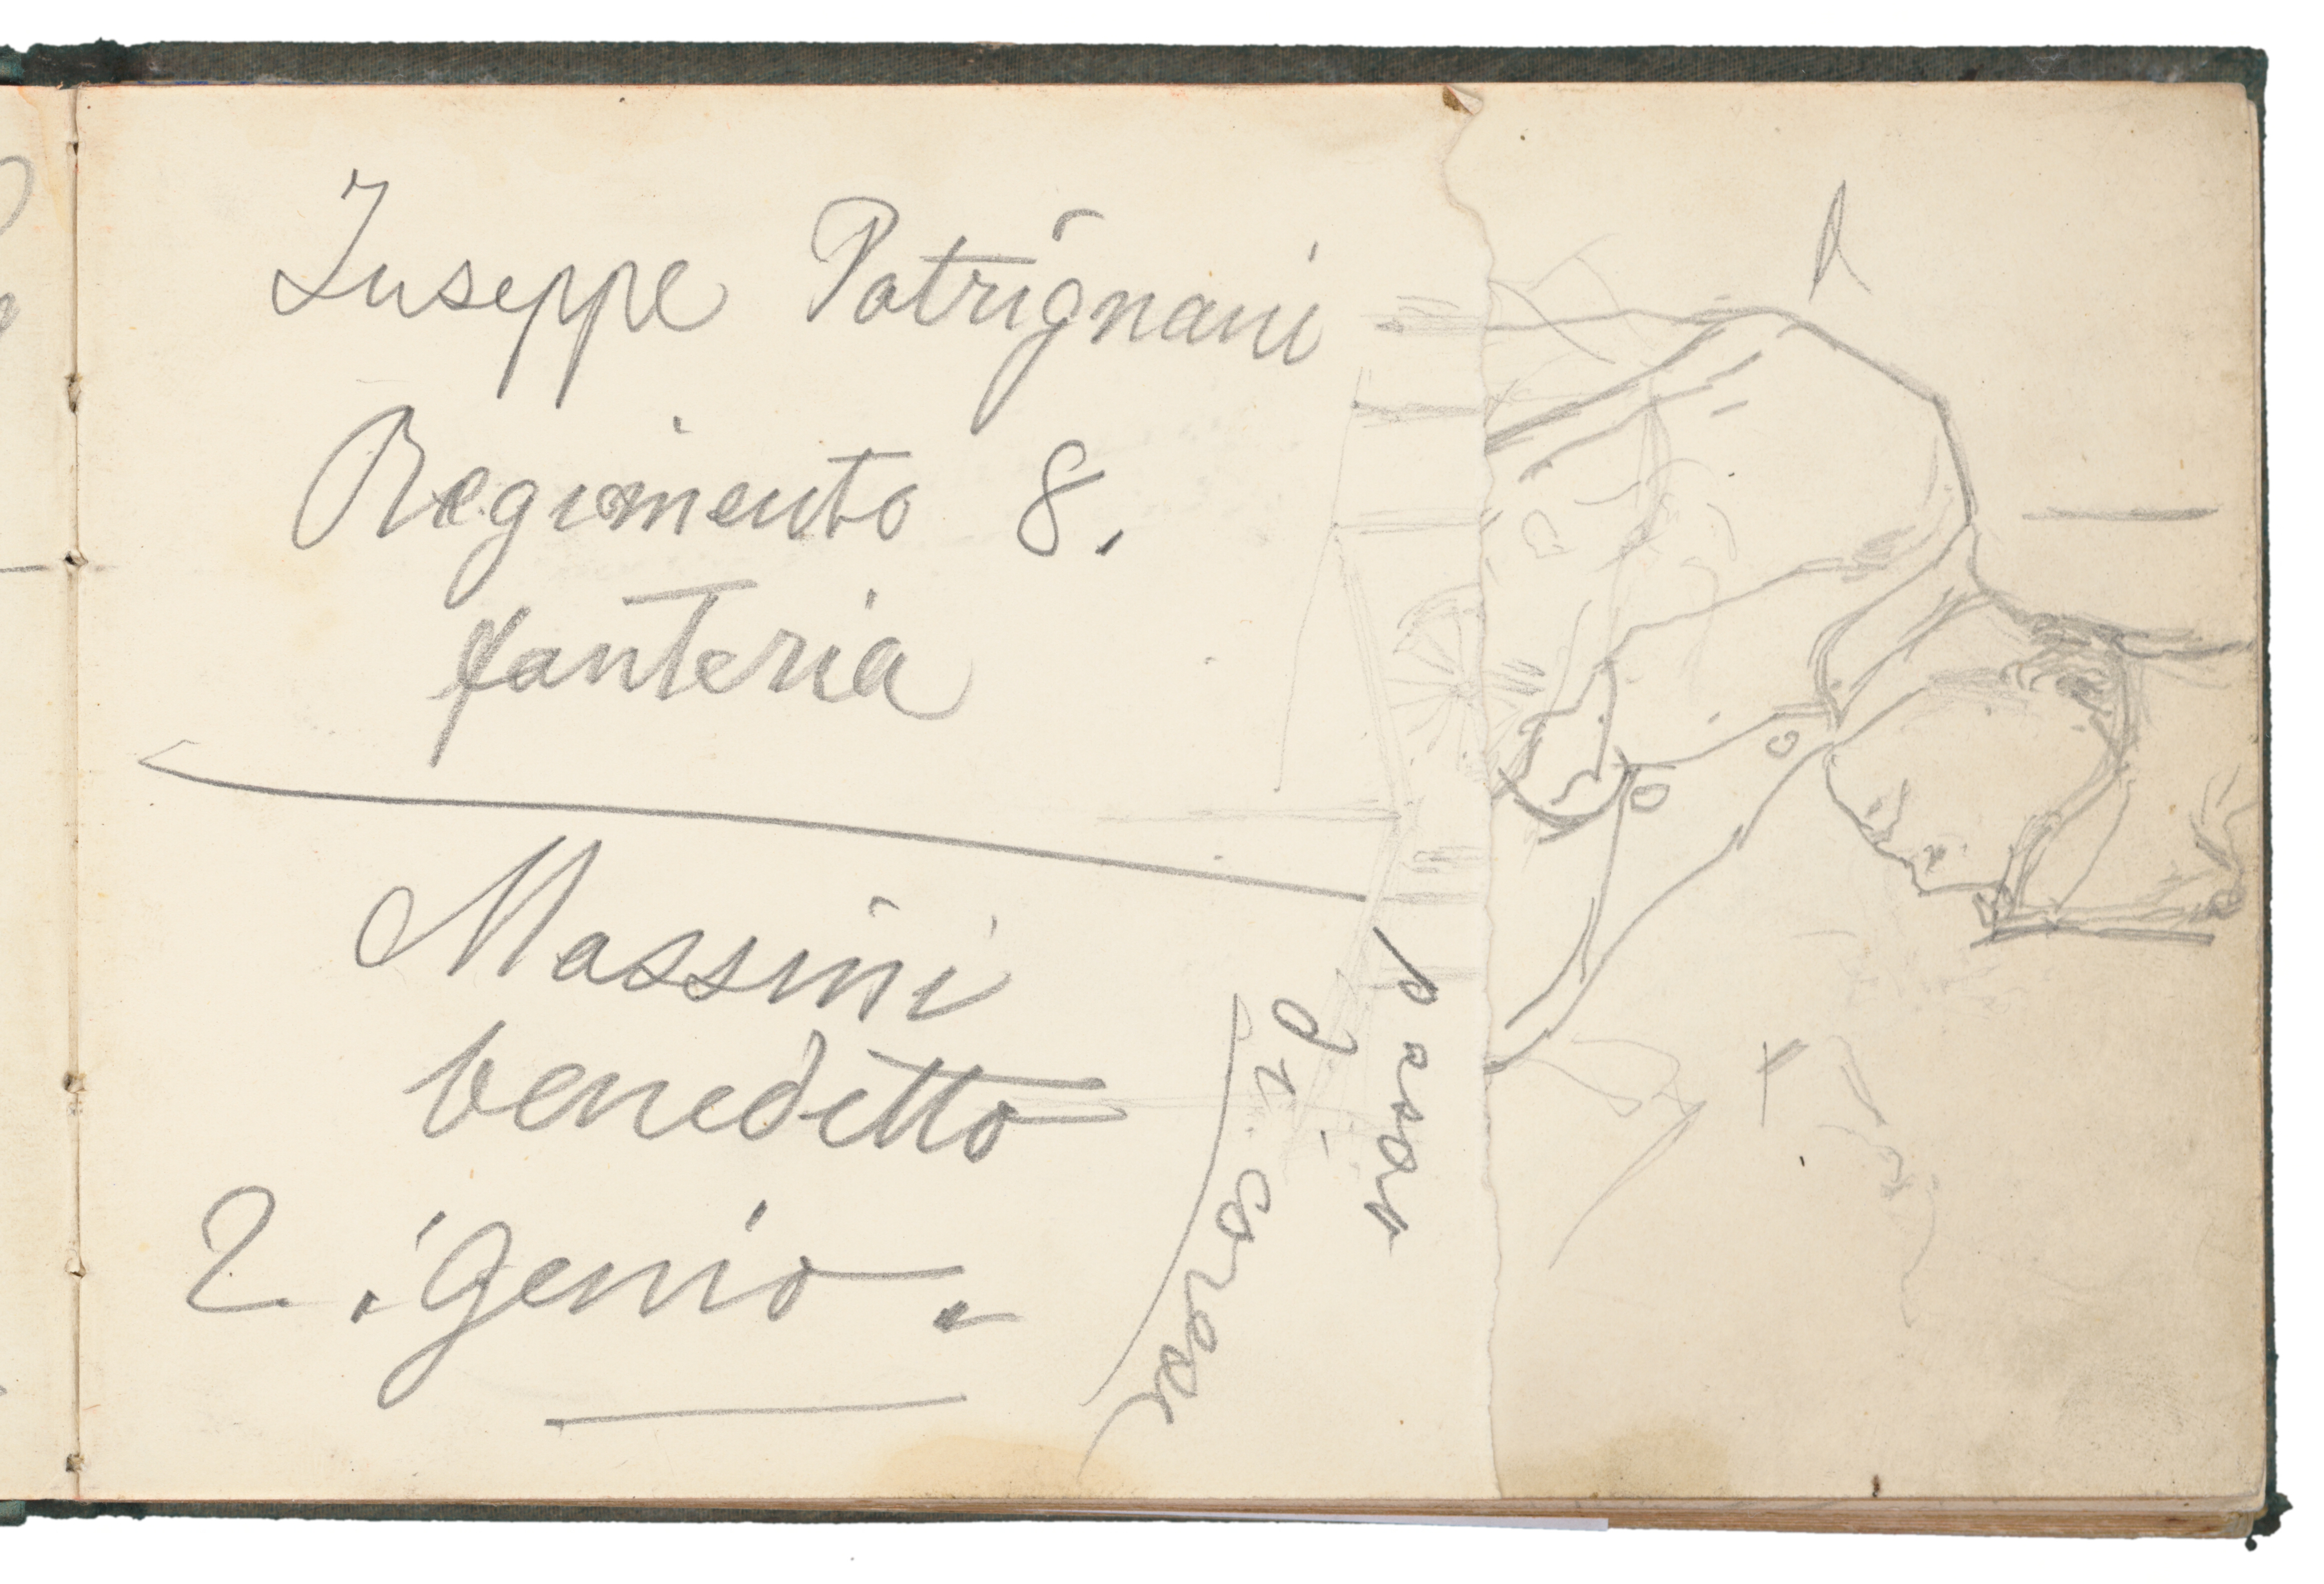 Iuseppe Patrignani
Regimento 8.
fanteria
Massini
benedetto
2. Genio.